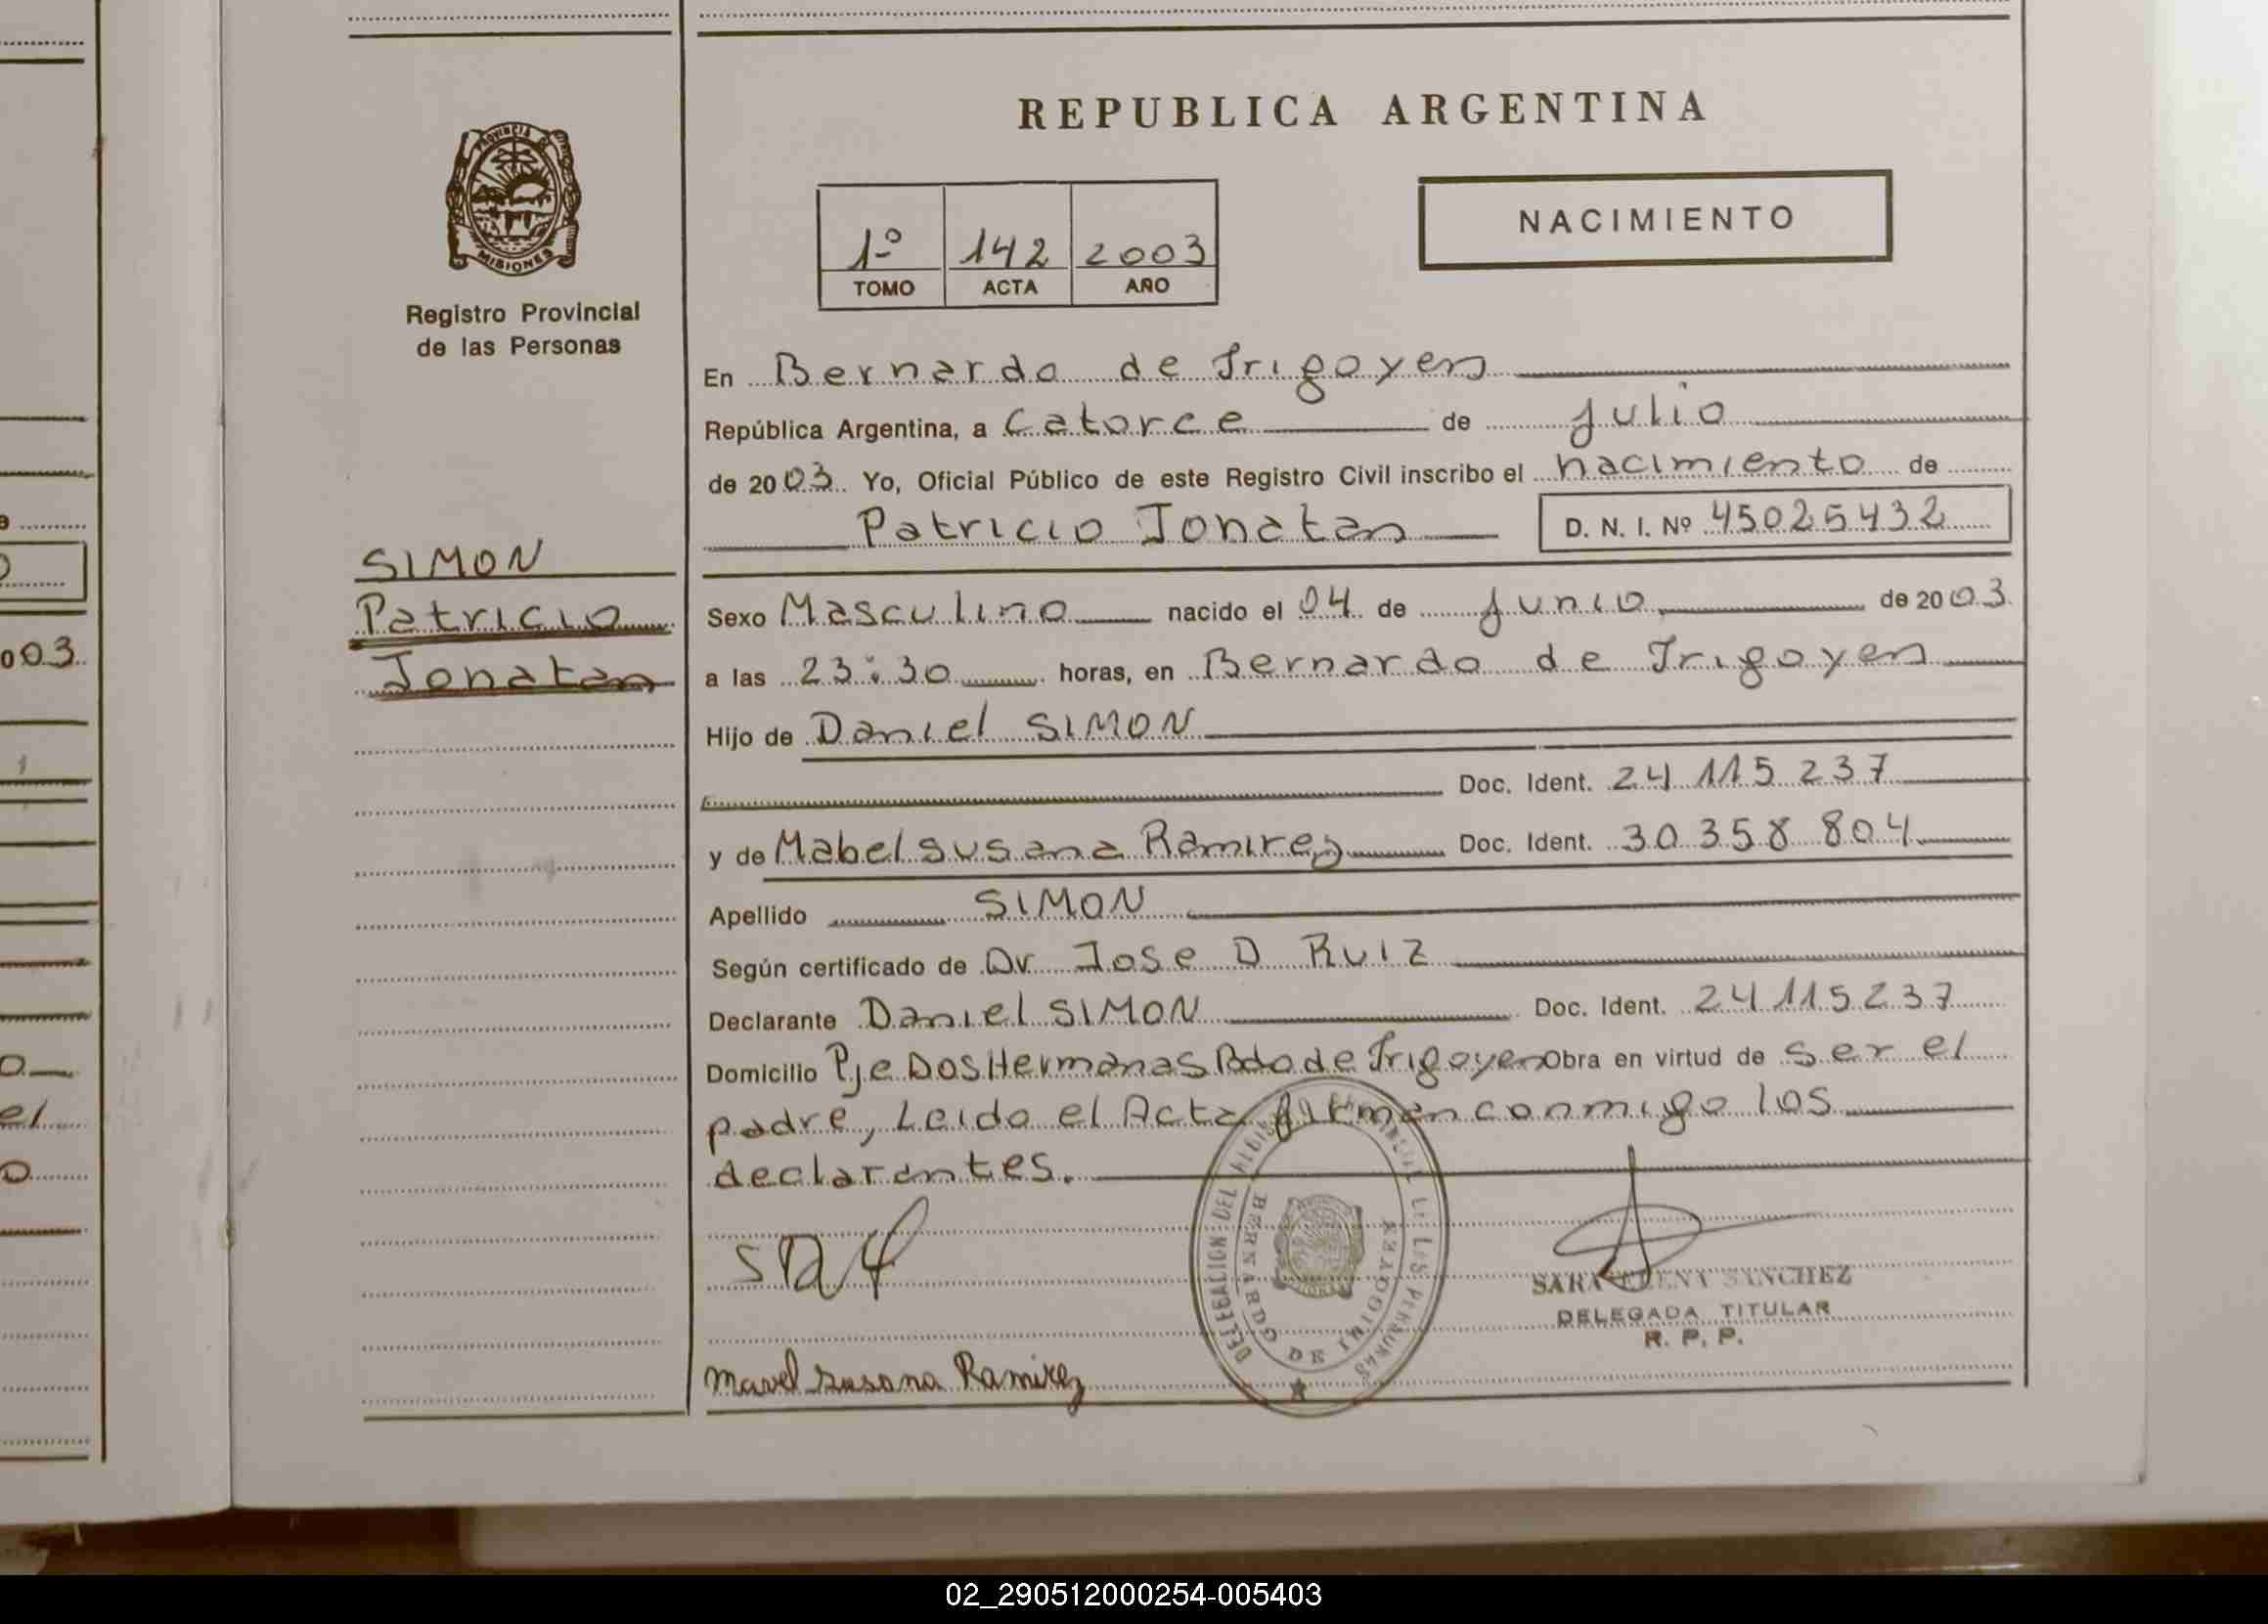 REPUBLICA ARGENTINA
PROVINCIA DE
MISIONES
Registro Provincial
de las Personas
NACIMIENTO
1º 142 2003
TOMO ACTA AÑO
En Bernardo de Irigoyen
República Argentina, a Catorce de Julio
de 2003. Yo, Oficial Público de este Registro Civil inscribo el nacimiento de
Patricio Jonatan D. N. I. Nº 45025432
SIMON
Patricio
Jonatan
Sexo Masculino nacido el 04 de Junio de 2003.
a las 23:30 horas, en Bernardo de Irigoyen
Hijo de Daniel SIMON
Doc. Ident. 24 115 237
y de Mabel Susana Ramirez Doc. Ident. 30 358 804
Apellido SIMON
Según certificado de Dr Jose D Ruiz
Declarante Daniel SIMON Doc. Ident. 24115237
Domicilio Pje Dos Hermanas Bdo de Irigoyen Obra en virtud de ser el
padre, Leido el Acta firman conmigo los
declarantes.
DELEGACION DEL REGISTRO PROVINCIAL DE LAS PERSONAS
BERNARDO DE IRIGOYEN
SARA ELENA SANCHEZ
DELEGADA TITULAR
R. P. P.
Mavel Susana Ramirez
003
el
02_290512000254-005403